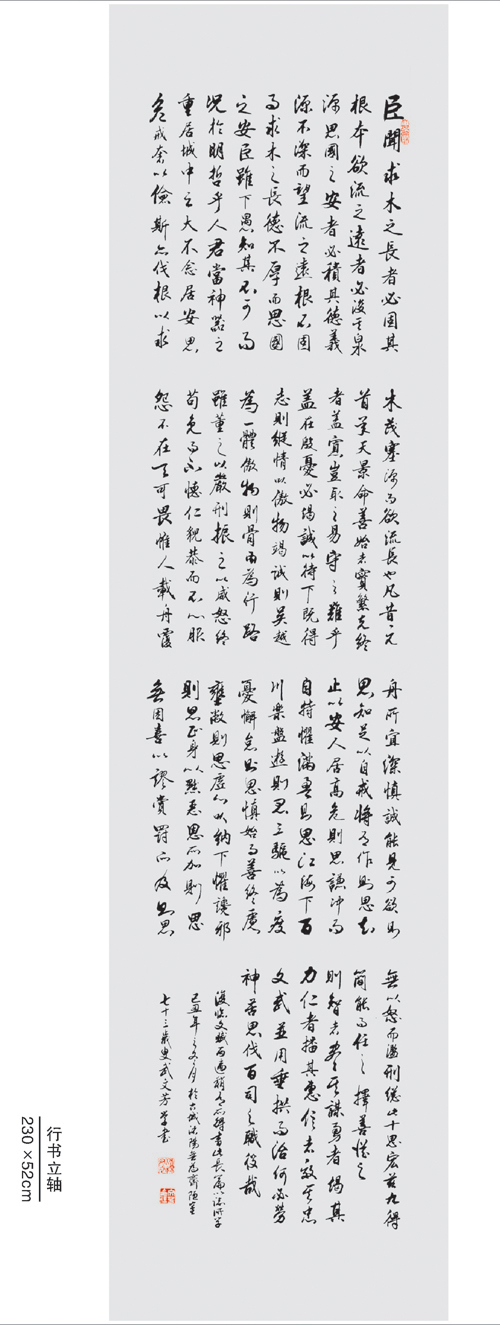 臣聞求木之長者必固其
根本欲流之遠者必浚其泉
源思國之安者必積其德義
源不深而望流之遠根不固
而求木之長德不厚而思國
之安臣雖下愚知其不可而
況於明哲乎人君當神器之
重居域中之大不念居安思
危戒奢以儉斯亦伐根以求
木茂塞源而欲流長也凡昔元
首承天景命善始者實繁克終
者蓋寡豈取之易守之難乎
蓋在殷憂必竭誠以待下既得
志則縱情以傲物竭誠則吳越
為一體傲物則骨肉為行路
雖董之以嚴刑振之以威怒終
苟免而不懷仁貌恭而不心服
怨不在大可畏惟人載舟覆
舟所宜深慎誠能見可欲則
思知足以自戒將有作則思知
止以安人居高危則思謙沖而
自持懼滿盈則思江海下百
川樂盤遊則思三驅以為度
憂懈怠則思慎始而善終慮
壅蔽則思虛心以納下懼讒邪
則思正身以黜惡恩所加則思
無因喜以謬賞罰所及則思
無以怒而濫刑總此十思宏茲九得
簡能而任之擇善從之
則智者盡其謀勇者竭其
力仁者播其惠信者效其忠
文武並用垂拱而治何必勞
神苦思代百司之職役哉
復臨文賦两遍稍有所得書此長篇以誌所學
己丑年之冬月於古城沈陽
七十三歲叟武文芳草書
行书立轴
230×52cm